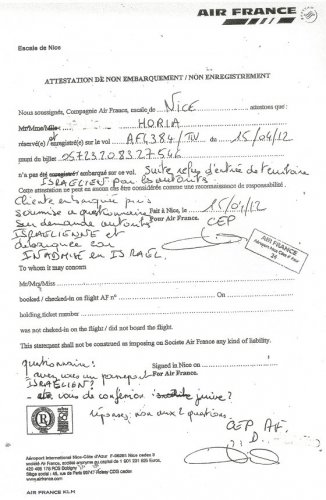 AIR FRANCE
Escale de Nice
ATTESTATION DE NON EMBARQUEMENT / NON ENREGISTREMENT
Nous soussignés, Compagnie Air France, escale de NICE attestons que :
Mr/Mme/Mlle HORIA
et réservé(e) / enregistré(e) sur le vol AF4384/TLV du 15/04/12
muni du billet 0572320832754
n'a pas été enregistré/ embarqué sur ce vol. Suite refus d'entrée de territoire
ISRAELIEN par les autorités
Cette attestation ne peut en aucun cas être considérée comme une reconnaissance de responsabilité.
Cliente embarquée puis
soumise a questionnaire Fait à Nice, le 15/04/12
sur demande autorités Pour Air France, CEP
ISRAELIENNE et
débarquée car
INADMIE en ISRAEL.
AIR FRANCE
Aéroport Nice Côte d'Azur
24
To whom it may concern
Mr/Mrs/Miss
booked / checked-in on flight AF n° On
holding ticket number
was not checked-in on the flight / did not board the flight.
This statement shall not be construed as imposing on Societe Air France any kind of liability.
questionnaire: Signed in Nice on
For Air France.
avez vous un passeport
ISRAELIEN?
etes vous de confession juive?
réponses: non aux 2 questions.
CEP AF
Aéroport International Nice-Côte d'Azur
société Air France, société anonyme au capital de 1 901 231 625 Euros,
420 495 178 RCS Bobigny
Siège social : 45, rue de Paris 95747 Roissy CDG cedex
AIR FRANCE KLM